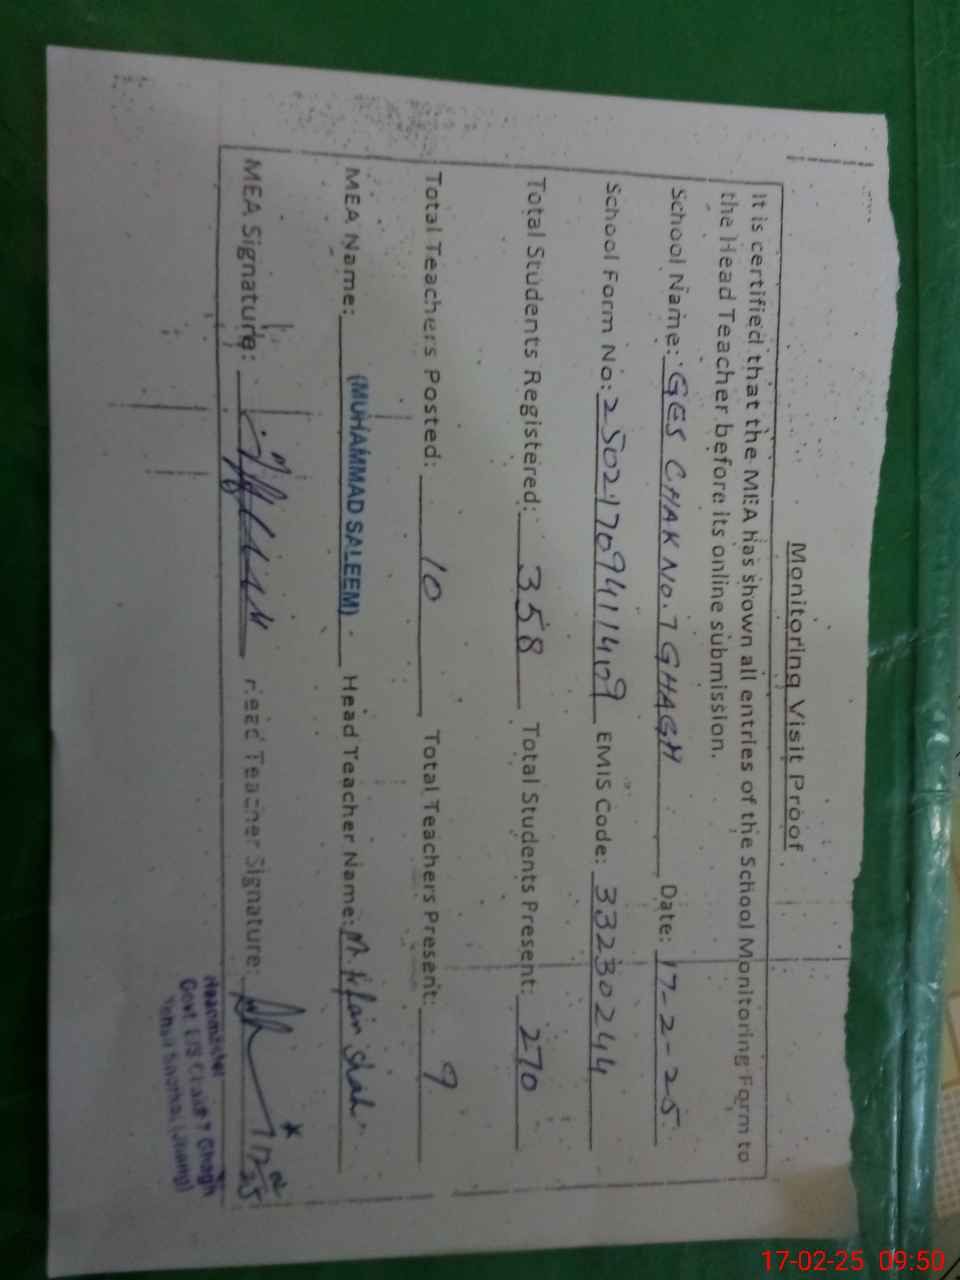 Monitoring Visit Proof
It is certified that the MEA has shown all entries of the School Monitoring Form to
the Head Teacher before its online submission.
School Name: GES CHAK No. 7 GHAGH Date: 17-2-25
School Form No: 2502170941149 EMIS Code: 33230244
Total Students Registered: 358 Total Students Present: 270
Total Teachers Posted: 10 Total Teachers Present: 9
MEA Name: (MUHAMMAD SALEEM) Head Teacher Name: M. Irfan Shah
MEA Signature: Head Teacher Signature:
Headmaster
Govt E/S Chak 7 Ghagh
(Jhang)
17-02-25 09:50